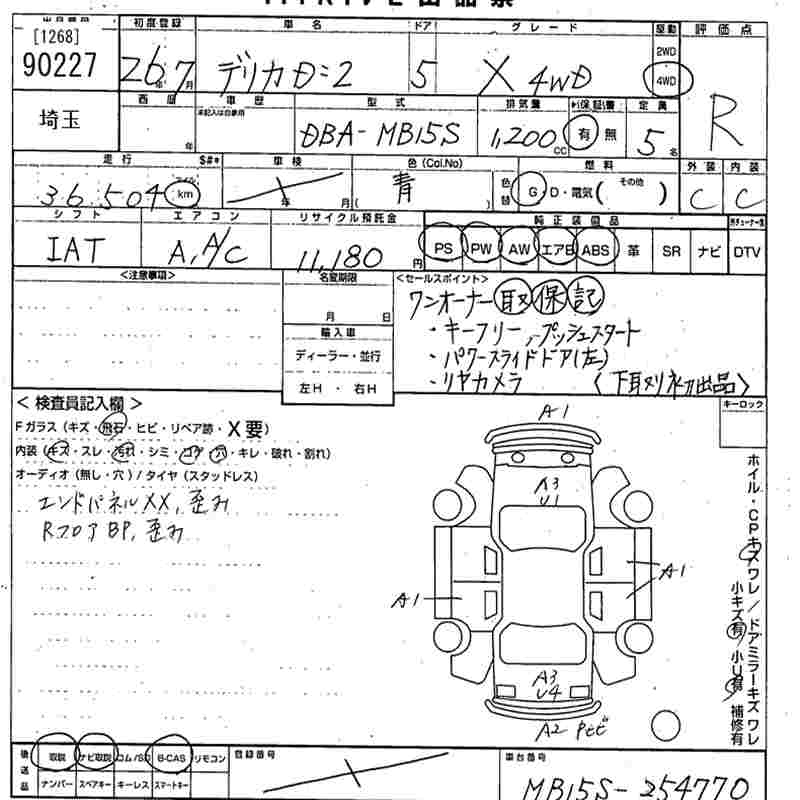 [1268]
90227
埼玉
初度登録
26年7月
車名
デリカD:2
ドア
5
グレード
X 4WD
駆動
2WD
4WD
評価点
R
西暦
年
車歴
未記入は自家用
型式
DBA-MB15S
排気量
1,200cc
保証書
有 無
定員
5名
走行
36,504 km
車検
年 月
色(Col.No)
青
色替
燃料
G・D・電気( その他 )
外装
C
内装
C
シフト
IAT
エアコン
A,A/C
リサイクル預託金
11,180円
純正装備品
PS PW AW エアB ABS 革 SR ナビ DTV
<注意事項>
名変期限
月 日
輸入車
ディーラー・並行
左H・右H
<セールスポイント>
ワンオーナー 取 保 記
・キーフリー,プッシュスタート
・パワースライドドア(左)
・リヤカメラ
<検査員記入欄>
Fガラス(キズ・飛石・ヒビ・リペア跡・X要)
内装(キズ・スレ・汚れ・シミ・コゲ・穴・キレ・破れ・割れ)
オーディオ(無し・穴)/タイヤ(スタッドレス)
エンドパネルXX,歪み
RフロアBP,歪み
キーロック
A1
A3
U1
A1
A1
A3
U4
A2 Pヒビ
ホイル・CPキズワレ/ドアミラーキズワレ
小キズ有/小U有 補修有
後送品
取説 ナビ取説 コム/SD B-CAS リモコン
ナンバー スペアキー キーレス スマートキー
登録番号
車台番号
MB15S-254770